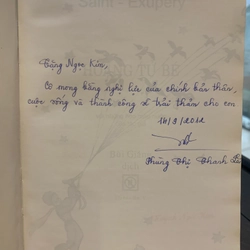 Saint - Exupéry
Đặng Ngọc
Cô mong bằng nghị lực của chính bản thân,
cuộc sống và thành công sẽ trải thảm cho em
14/9/2012
Phùng Thị Thanh